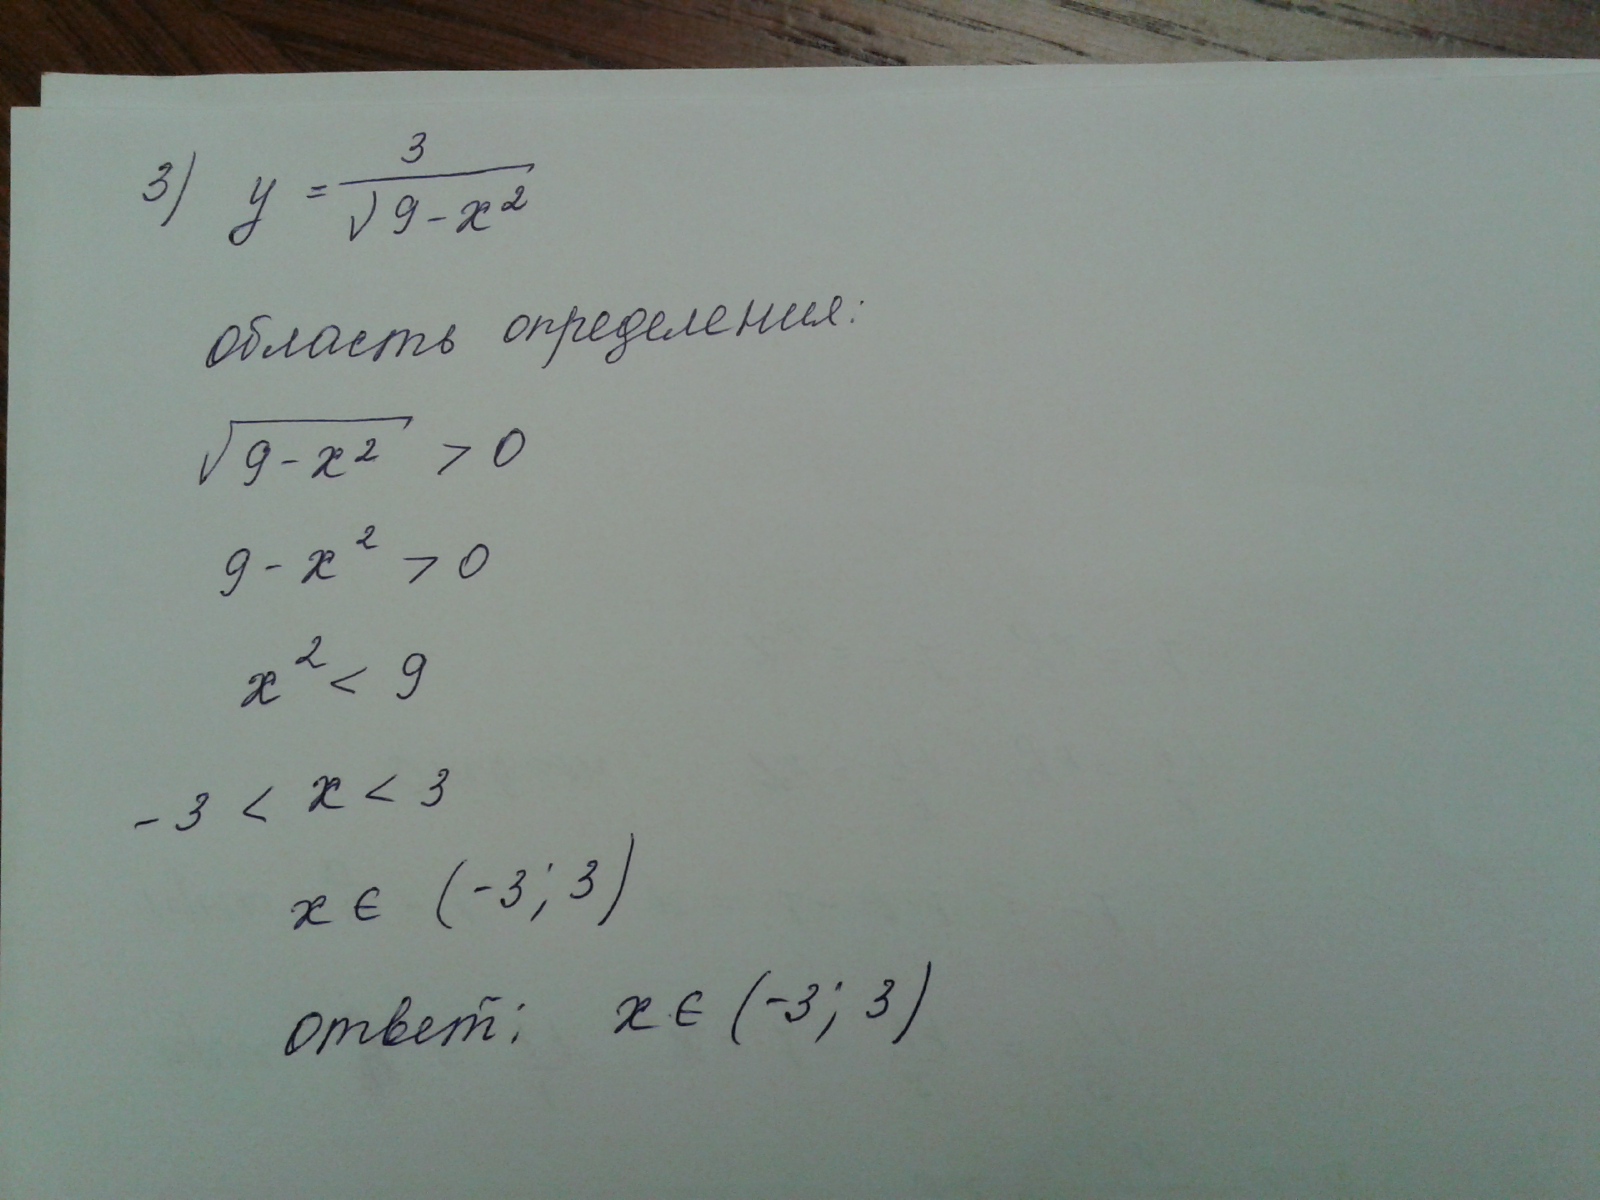 3) y = 3/√9-x²
область определения:
√9-x² > 0
9-x² > 0
x² < 9
-3 < x < 3
x є (-3; 3)
ответ: x є (-3; 3)